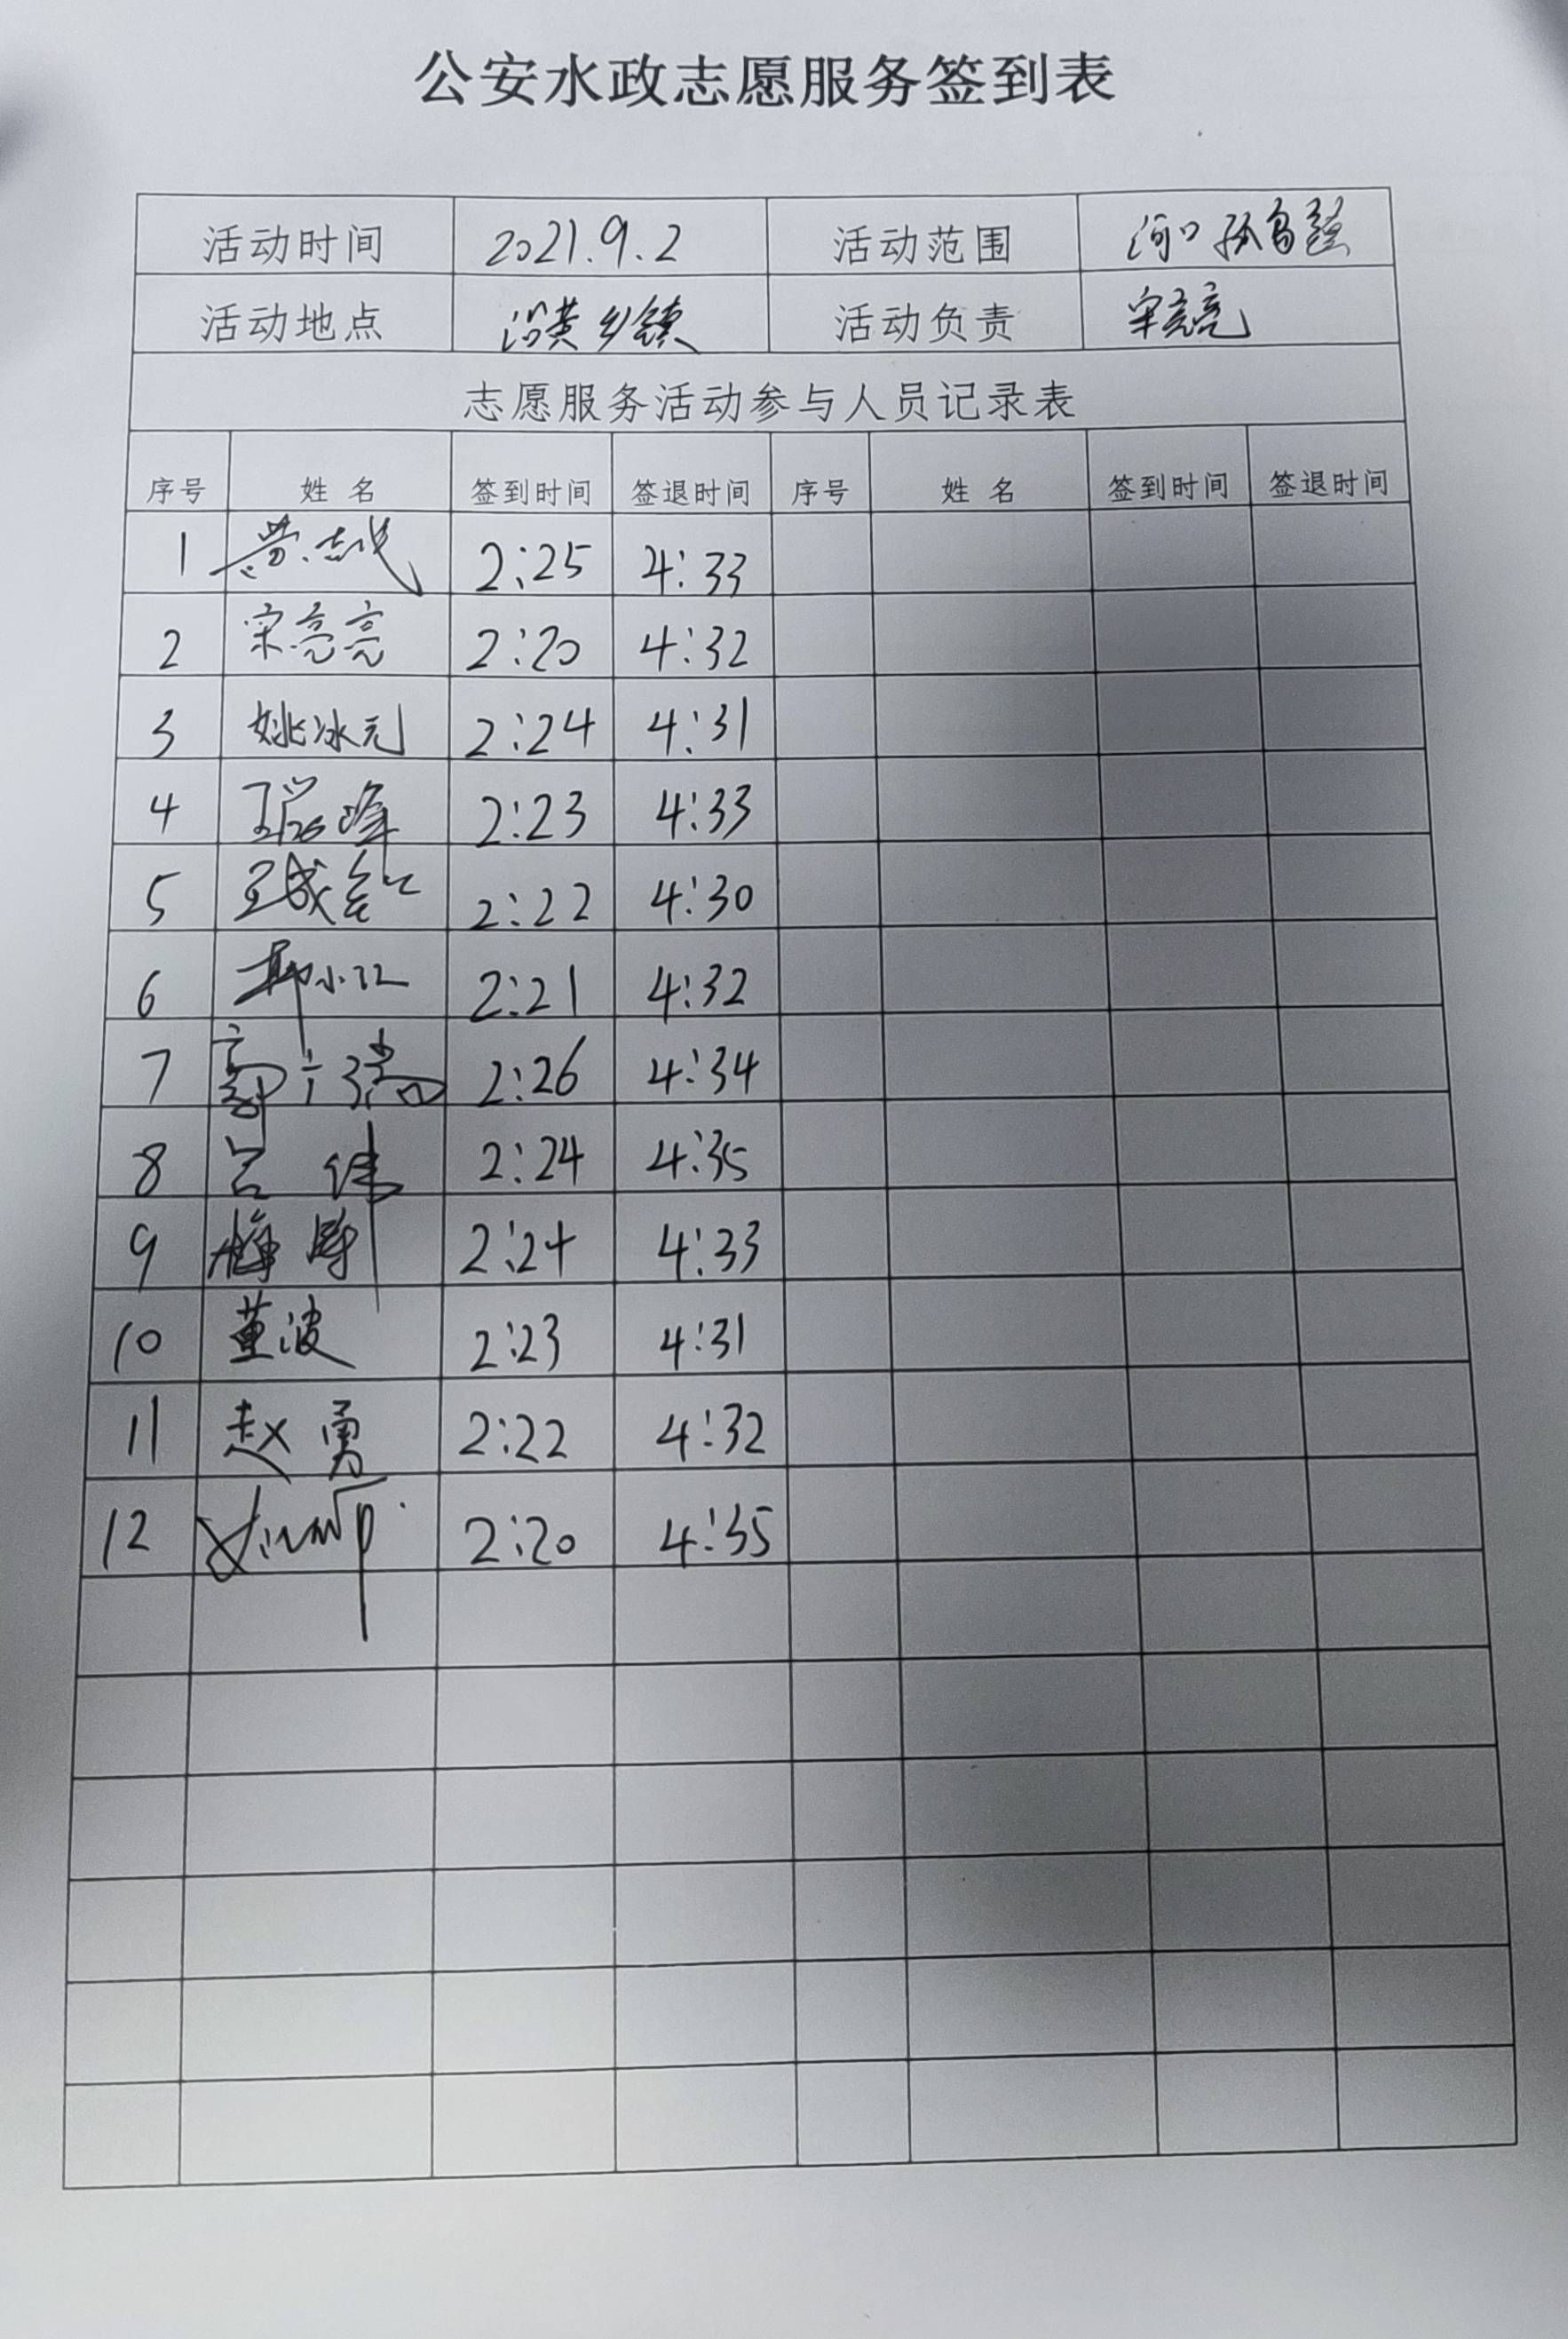 公安水政志愿服务签到表
活动时间 2021.9.2 活动范围 河口 孤岛镇
活动地点 沿黄乡镇 活动负责 宋亮亮
志愿服务活动参与人员记录表
序号 姓名 签到时间 签退时间 序号 姓名 签到时间 签退时间
1 2:25 4:33
2 宋亮亮 2:20 4:32
3 姚冰元 2:24 4:31
4 王瑞峰 2:23 4:33
5 2:22 4:30
6 2:21 4:32
7 2:26 4:34
8 吕伟 2:24 4:35
9 2:24 4:33
10 董波 2:23 4:31
11 赵勇 2:22 4:32
12 2:20 4:35